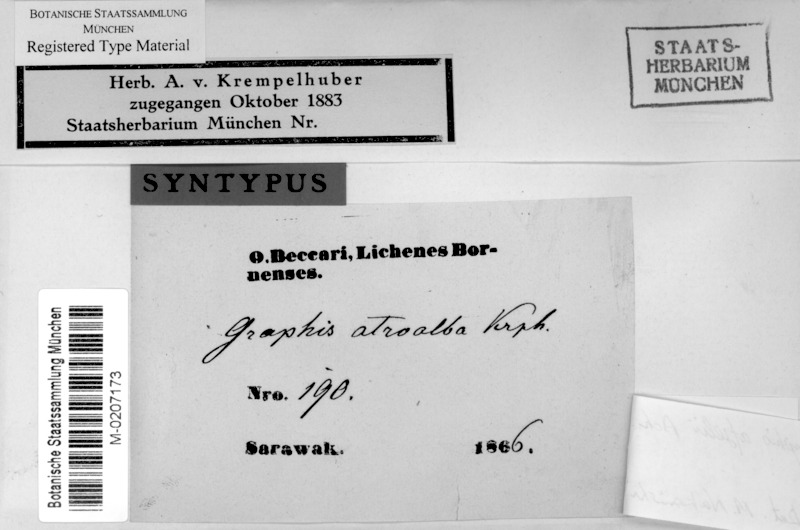 BOTANISCHE STAATSSAMMLUNG
MÜNCHEN
Registered Type Material
Herb. A. v. Krempelhuber
zugegangen Oktober 1883
Staatsherbarium München Nr.
STAATS-
HERBARIUM
MÜNCHEN
SYNTYPUS
O. Beccari, Lichenes Bor-
nenses.
Graphis atroalba Krph.
Nro. 190.
Sarawak. 1866.
Botanische Staatssammlung München
M-0207173